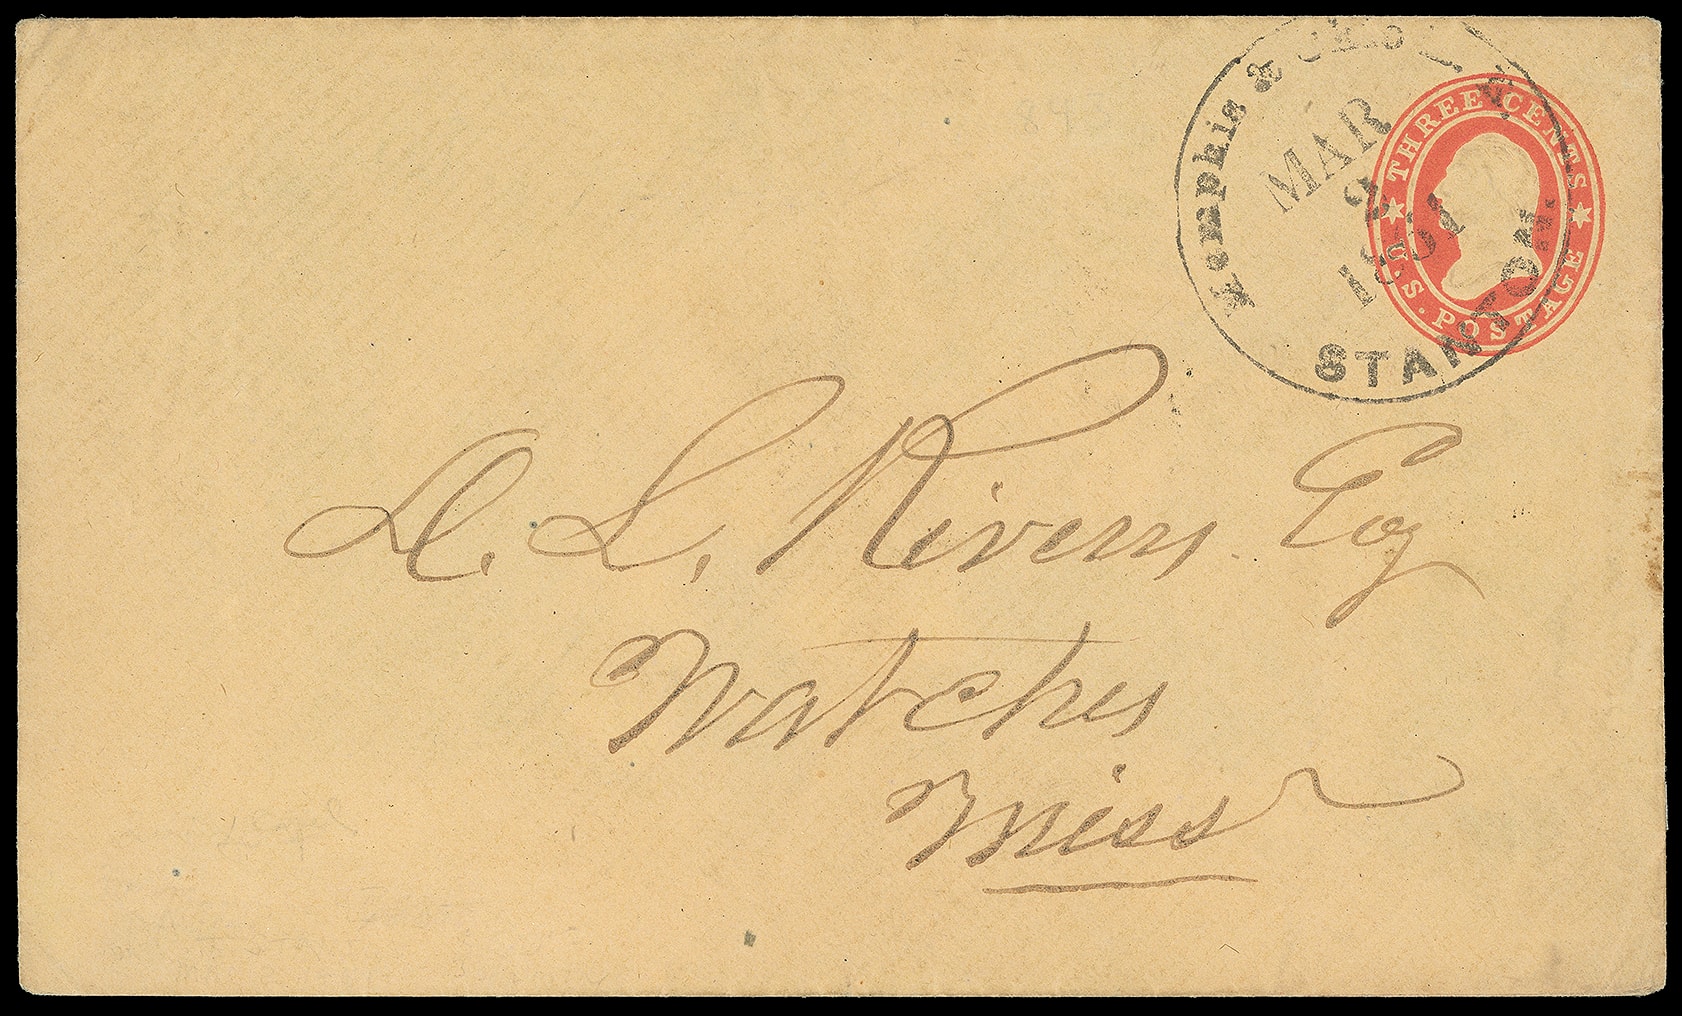 Memphis & 
MAR
2
STANTON.
THREE CENTS
U.S. POSTAGE
D. L. Rivers. Esq
Natches
Miss